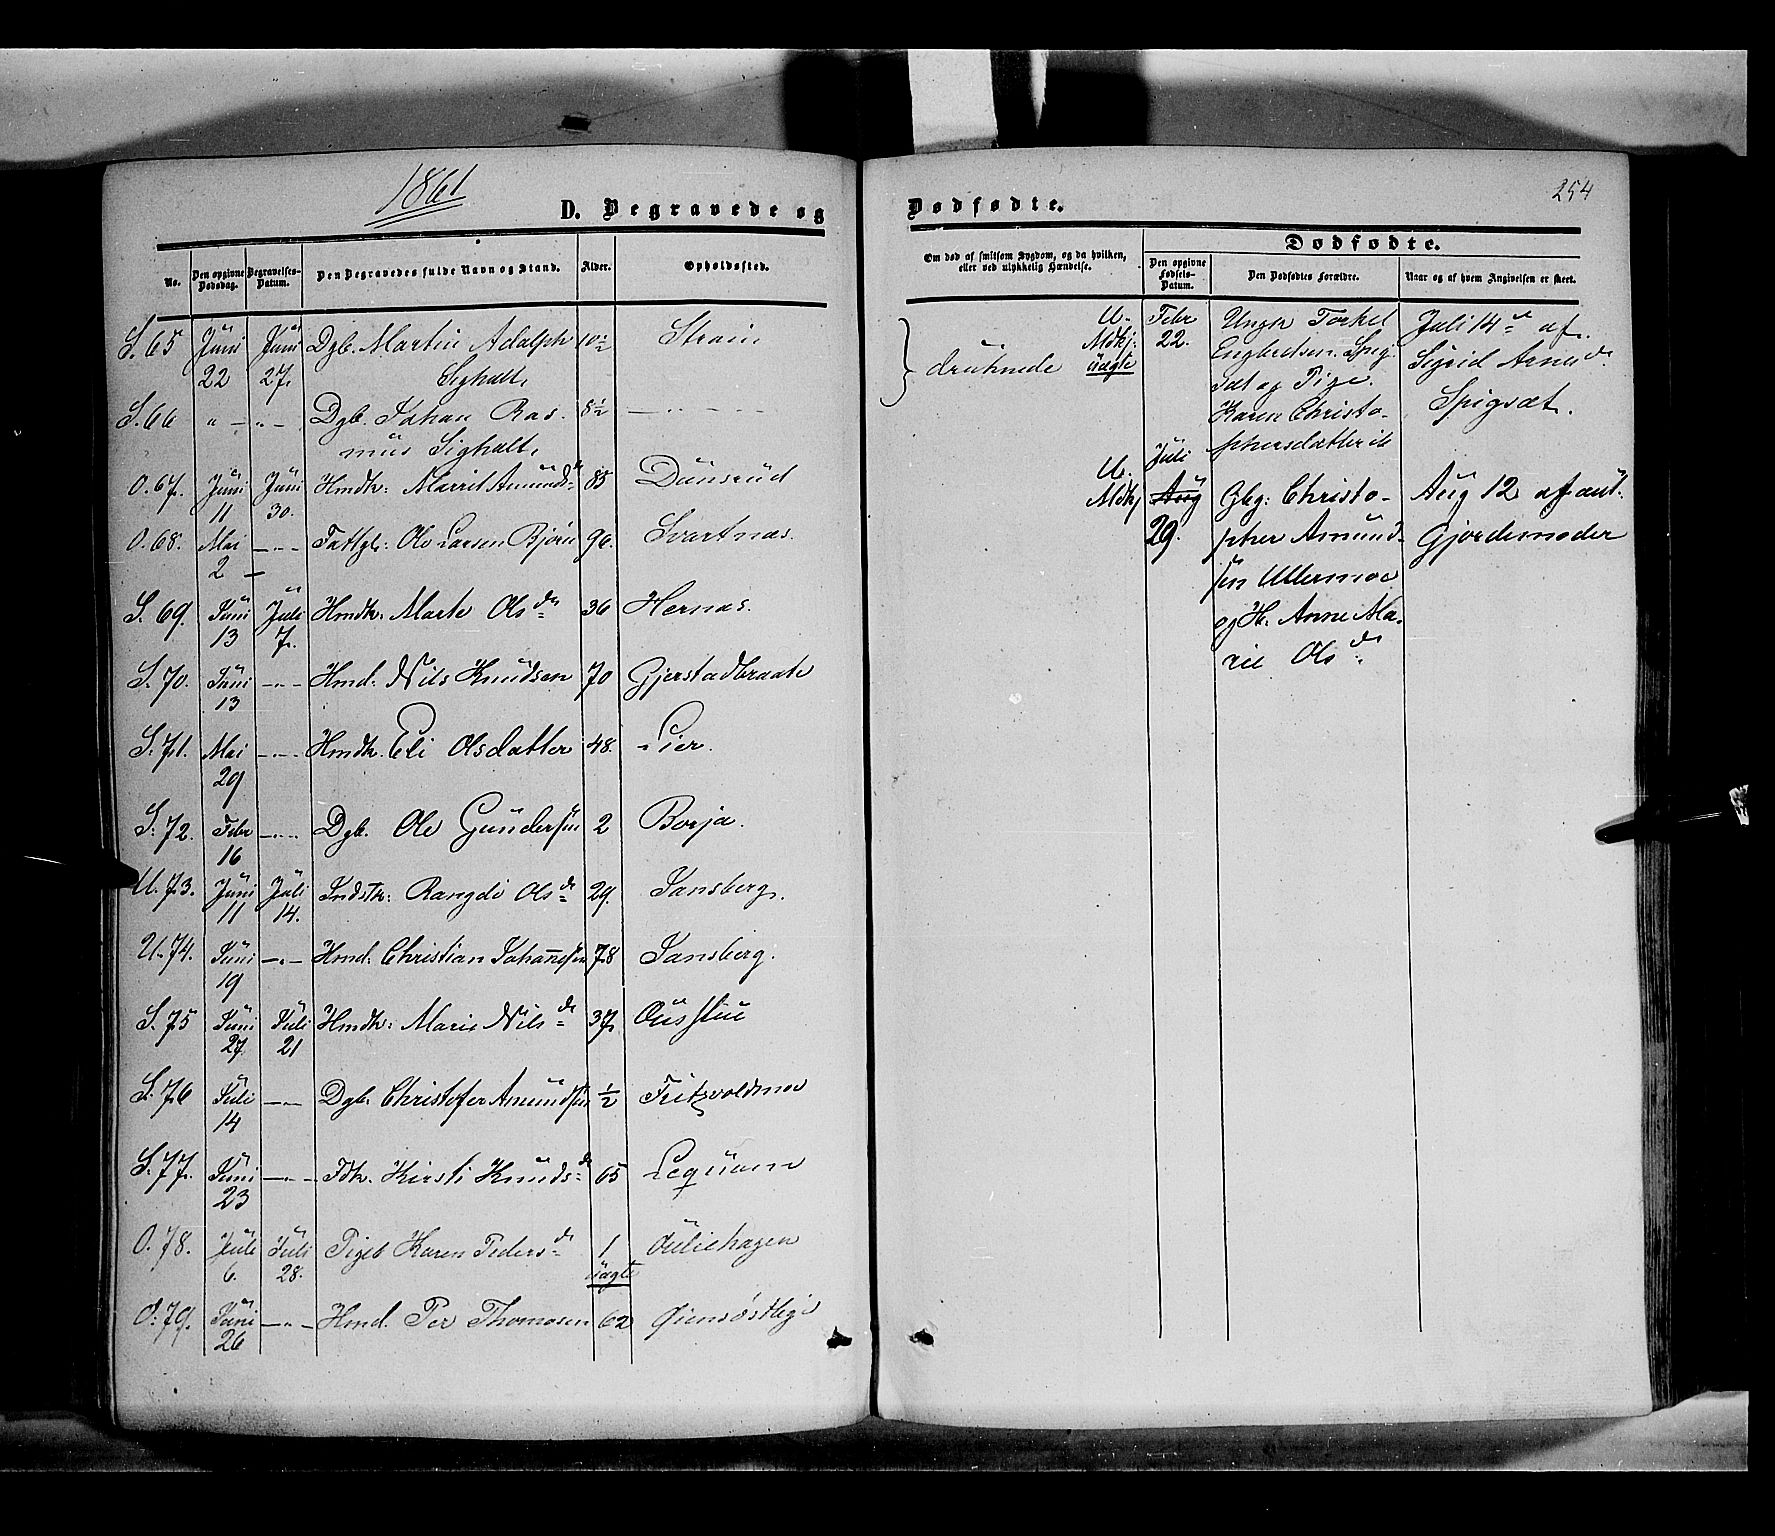 1861
D. Begravede og
No.
Den opgivne Dødsdag.
Begravelses-Datum.
Den Begravedes fulde Navn og Stand.
Alder.
Opholdssted.
S. 65 Juni 22 Juni 27. Dgb. Martin Adolph 10½ Strøm
Sigholt,
S. 66 " — " — Dgb. Johan Ras- 8½ — " — —
mus Sigholt,
O. 67. Juni 11 Juni 30. Hmdk: Marrit Amunds dr 85 Dünsrüd
O. 68. Mai 2 — " — Fattgl: Ole Larsen Bjørn 96. Svartnæs.
S. 69. Juni 13 Juli 7. Hmdk: Marte Ols dr 36 Hernæs.
S. 70. Juni 13 — " — Hmd. Nils Knudsen 70 Gjerstadbraate
S. 71. Mai 29 — " — Hmdk. Eli Olsdatter 48. Lier.
S. 72. Febr 16 — " — Dgb. Ole Gundersen 2 Borja.
U. 73. Juni 11 Juli 14. Indstk: Rangdi Ols dr 29. Jansberg.
U. 74. Juni 19 — " — Hmd. Christian Johannesen 78 Jansberg.
S. 75 Juni 27 Juli 21 Hmdk: Marie Nils dr 37 Ousstue
S. 76 Juli 14 — " — Dgb. Christofer Amundsen ½ Feitsvoldmoe
S. 77. Juni 23 — " — Fdk. Kirsti Knuds dr 65 Leqvam
O. 78. Juli 6. Juli 28. Pigeb Karen Peders dr 1 Juliehagen
uægte
O. 79. Juni 26 — " — Hmd. Per Thomasen 62 Øiensøstlige
254
Dødfødte.
Om død af smitsom Sygdom, og da hvilken,
eller ved ulykkelig Hændelse.
Dødfødte.
Den opgivne Fødsels-Datum.
Den Dødfødtes Forældre.
Naar og af hvem Angivelsen er skeet.
druknede
U. Mdkj: uægte
Febr 22.
Ungk Torkel
Engbretsen Spig
sæt og Pige
Karen Christo-
phersdatter ib
Juli 14 af
Sigrid Arne dr
Spigsæt.
U. Mdkj
Juli
Aug
29.
Gbg: Christo-
pher Amund-
sen Ullermoe
og H. Anne Ma-
rie Ols dr
Aug 12 af ant:
Gjordemoder